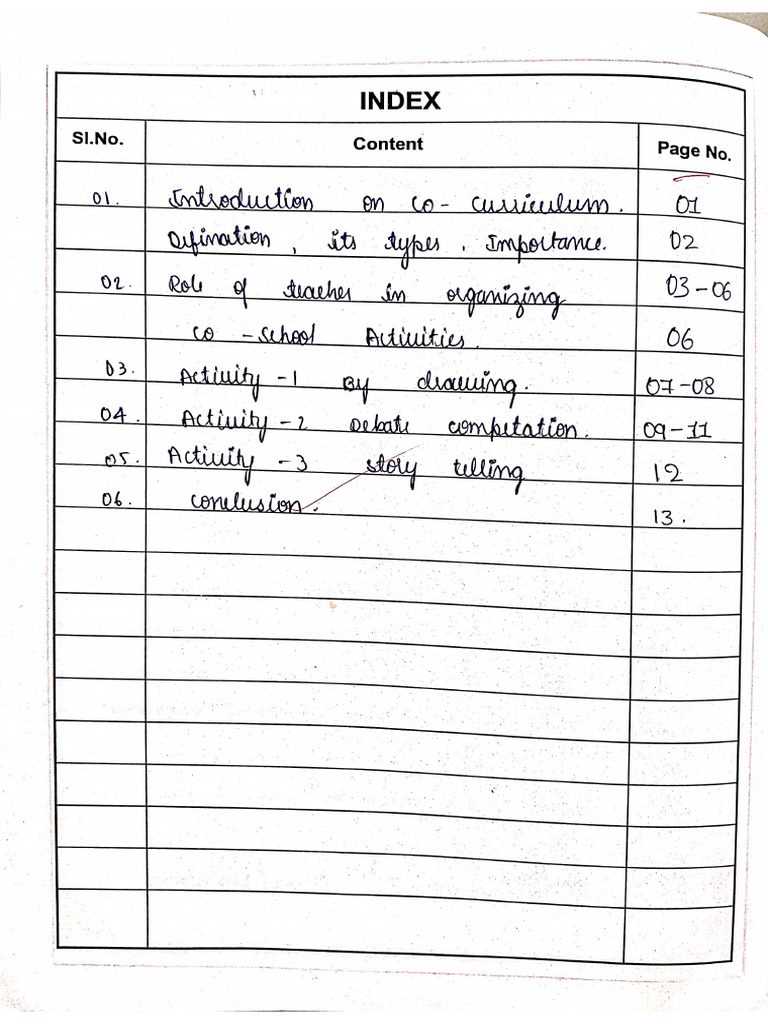 INDEX
Sl.No. Content Page No.
01. Introduction on co-curriculum. 01
Defination, its types, Importance. 02
02. Role of teacher in organizing 03-06
co-school Activities. 06
03. Activity-1 By drawing. 07-08
04. Activity-2 Debate competation. 09-11
05. Activity-3 story telling 12
06. conclusion. 13.